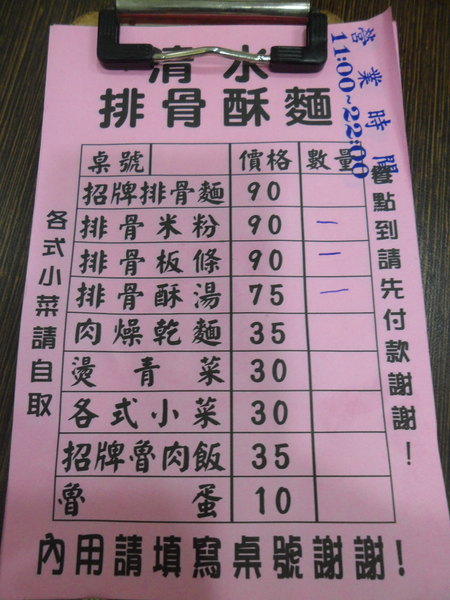 清水
排骨酥麵
營業時間
11:00~22:00
桌號 價格 數量
招牌排骨麵 90
排骨米粉 90 一
排骨板條 90 一
排骨酥湯 75 一
肉燥乾麵 35
燙青菜 30
各式小菜 30
招牌魯肉飯 35
魯蛋 10
各式小菜請自取
餐點到請先付款謝謝!
內用請填寫桌號謝謝!